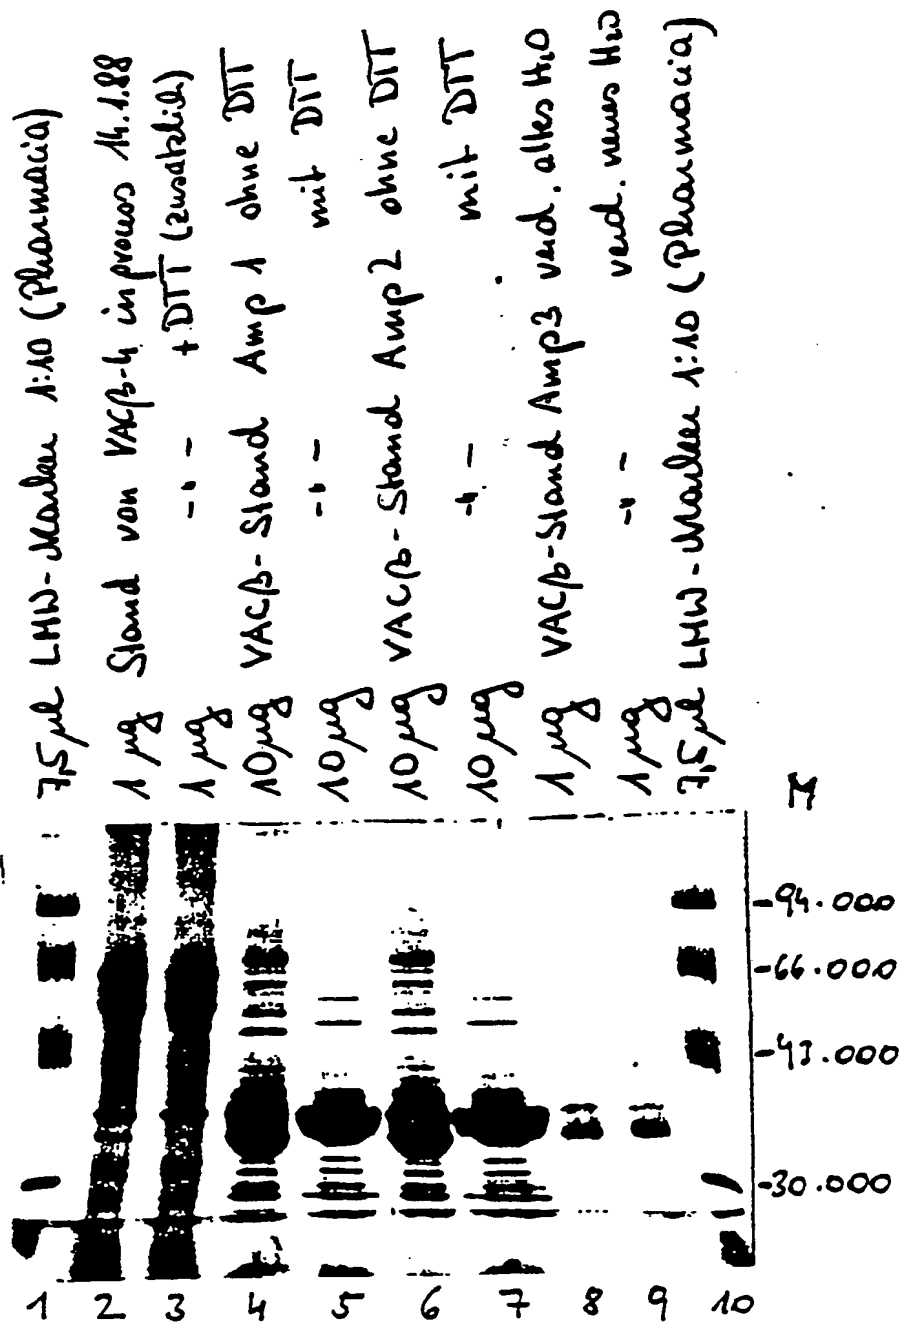 7,5 µl LMW-Marker 1:10 (Pharmacia)
1 µg Stand von VACβ-4 inprocess 14.1.88
1 µg -"- + DTT (zusätzlich)
10 µg VACβ-Stand Amp 1 ohne DTT
10 µg -"- mit DTT
10 µg VACβ-Stand Amp 2 ohne DTT
10 µg -"- mit DTT
1 µg VACβ-Stand Amp3 verd. altes H2O
1 µg -"- verd. neues H2O
7,5 µl LMW-Marker 1:10 (Pharmacia)
M
-94.000
-66.000
-43.000
-30.000
1 2 3 4 5 6 7 8 9 10